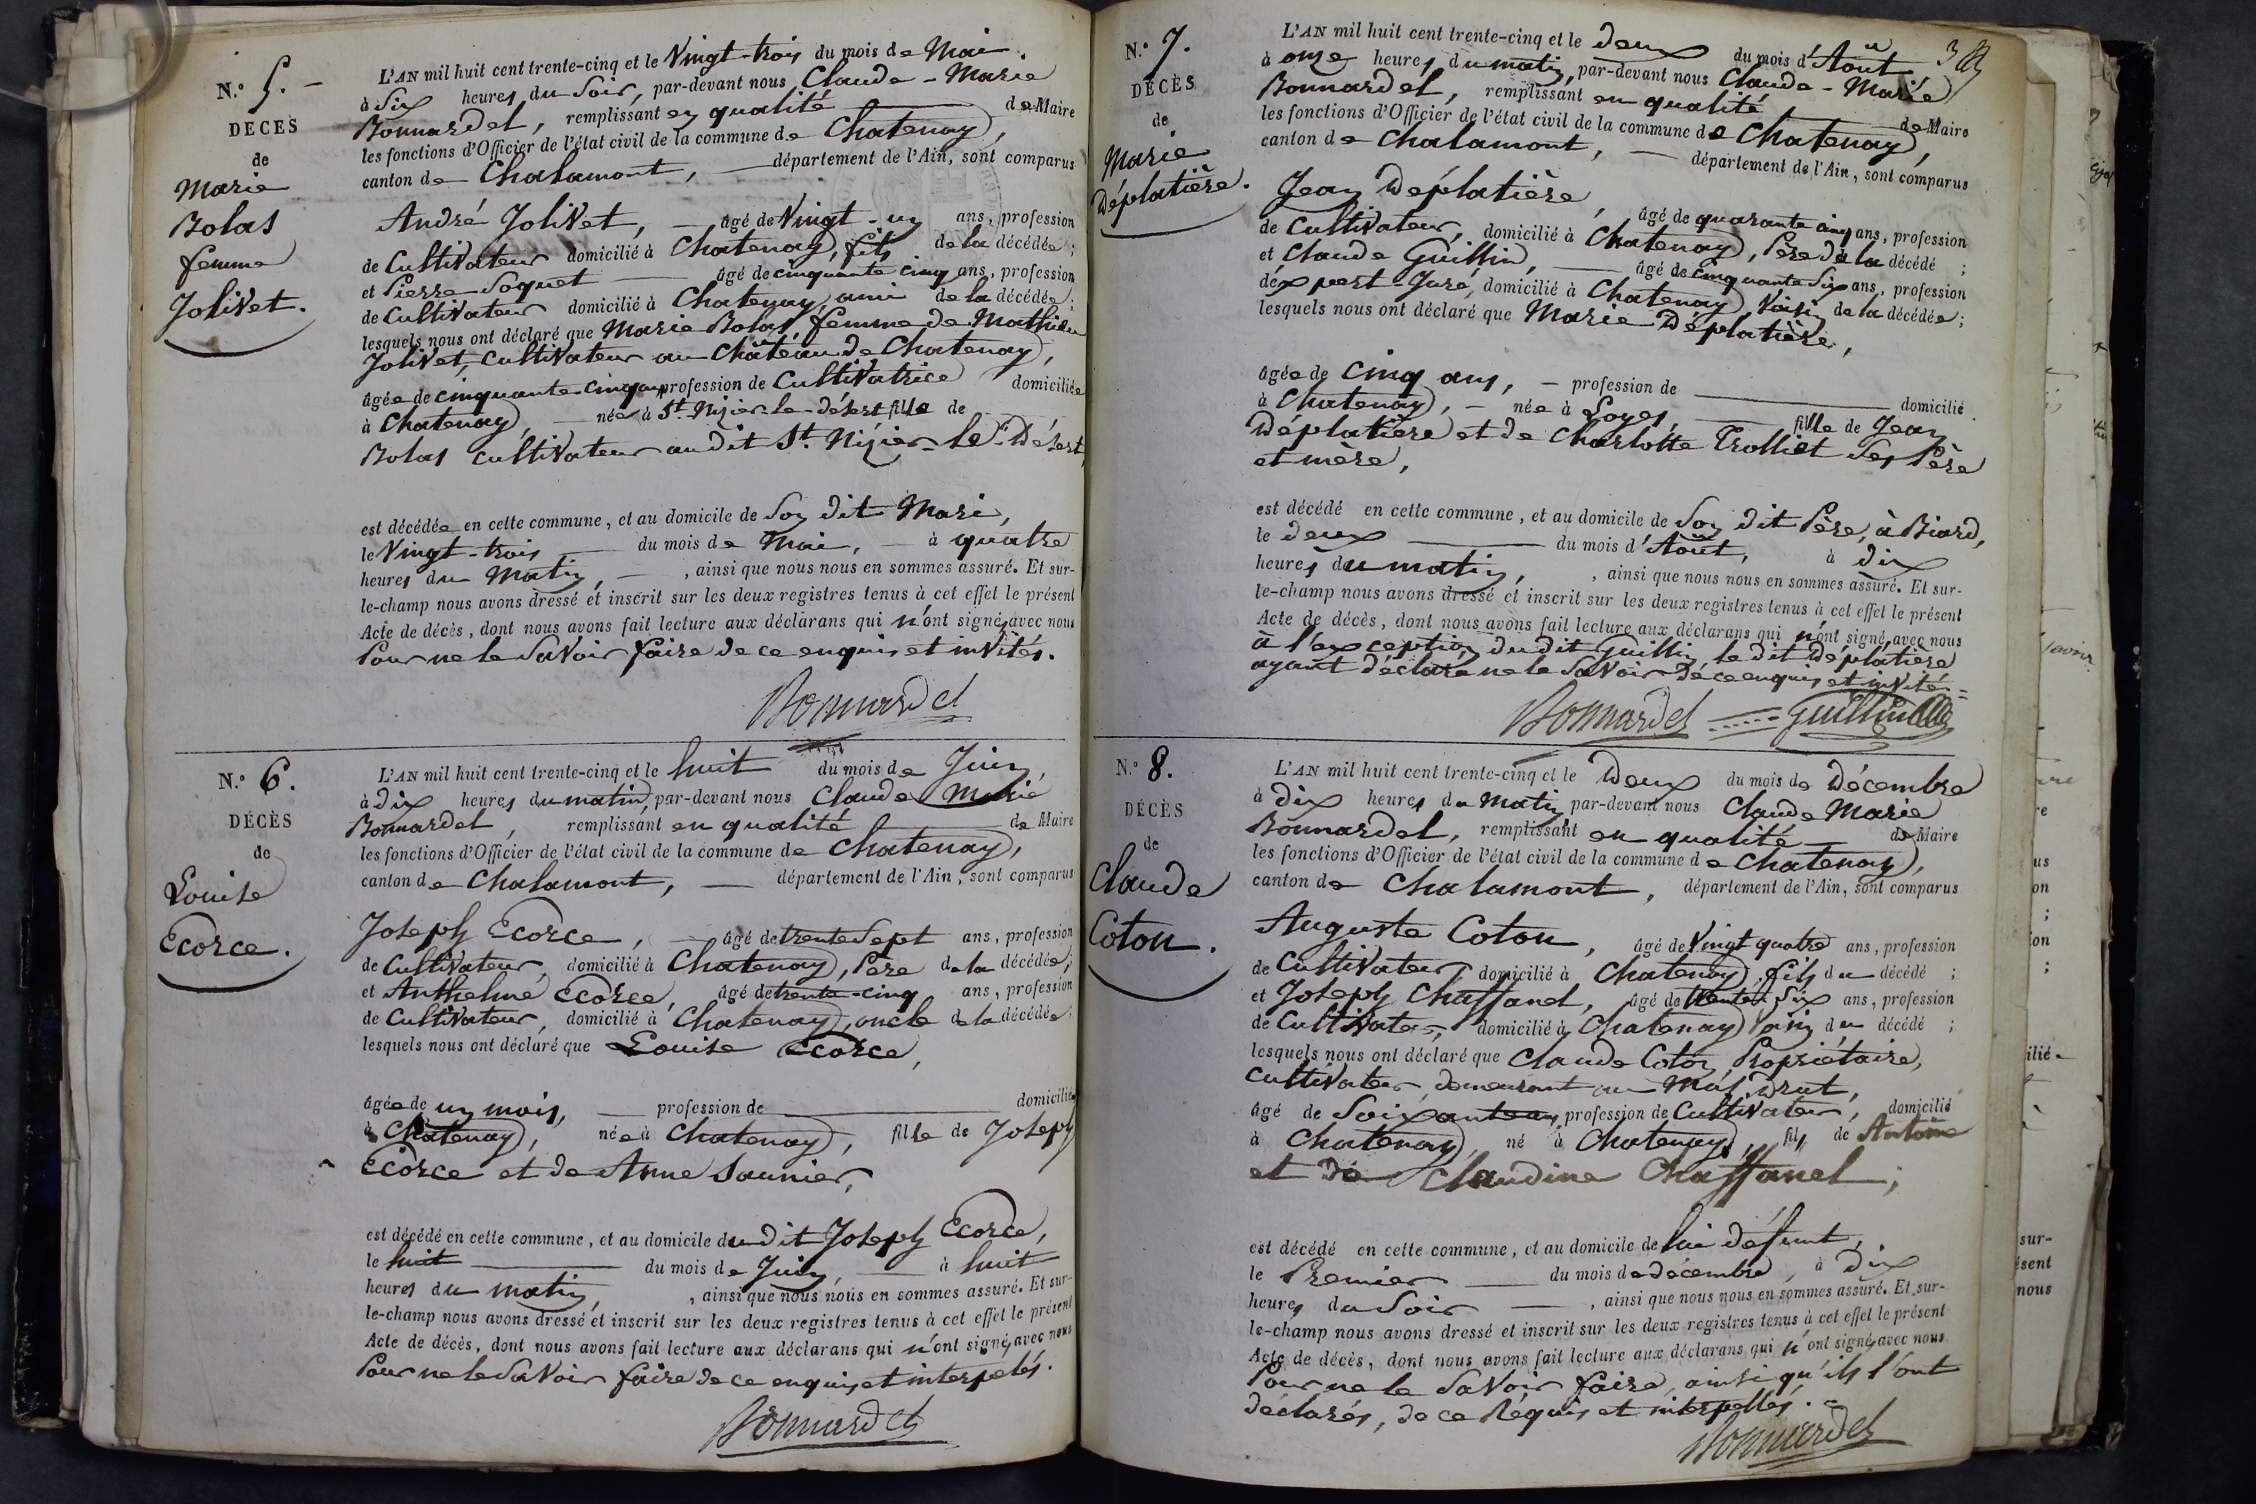 N.° 5. -
DECES
de
Marie
Bolas
femme
Jolivet.
L'AN mil huit cent trente-cinq et le Vingt-trois du mois de Mai
à Six heures du Soir, par-devant nous Claude-Marie
Bonnardel, remplissant en qualité de Maire
les fonctions d'Officier de l'état civil de la commune de Chatenay,
canton de Chalamont, département de l'Ain, sont comparus
André Jolivet, âgé de Vingt-un ans, profession
de Cultivateur domicilié à Chatenay, fils de la décédée;
et Pierre Soquet âgé de cinquante cinq ans, profession
de Cultivateur domicilié à Chatenay, ami de la décédée;
lesquels nous ont déclaré que Marie Bolas, femme de Mathieu
Jolivet, cultivateur au Château de Chatenay,
âgée de cinquante-cinq ans profession de Cultivatrice domiciliée
à Chatenay, née à St. Nizier-le-désert fille de
Bolas cultivateur audit St. Nizier-le-Désert,
est décédée en cette commune, et au domicile de Son dit Mari,
le Vingt-trois du mois de Mai, à quatre
heures du Matin, , ainsi que nous nous en sommes assuré. Et sur-
le-champ nous avons dressé et inscrit sur les deux registres tenus à cet effet le présent
Acte de décès, dont nous avons fait lecture aux déclarans qui n'ont signé avec nous
Pour ne le Savoir faire de ce enquis et invités.
Bonnardel
N.° 6.
DÉCÈS
de
Louise
Ecorce.
L'AN mil huit cent trente-cinq et le huit du mois de Juin,
à dix heures du matin, par-devant nous Claude Marie
Bonnardel, remplissant en qualité de Maire
les fonctions d'Officier de l'état civil de la commune de Chatenay,
canton de Chalamont, département de l'Ain, sont comparus
Joseph Ecorce, âgé de trente Sept ans, profession
de Cultivateur, domicilié à Chatenay, Père de la décédée;
et Anthelme Ecorce, âgé de trente-cinq ans, profession
de Cultivateur, domicilié à Chatenay, oncle de la décédée;
lesquels nous ont déclaré que Louise Ecorce,
âgée de un mois, profession de domicilié
à Chatenay, née à Chatenay, fille de Joseph
Ecorce et de Anne Saunier,
est décédé en cette commune, et au domicile dudit Joseph Ecorce,
le huit du mois de Juin, à huit
heures du matin, , ainsi que nous nous en sommes assuré. Et sur-
le-champ nous avons dressé et inscrit sur les deux registres tenus à cet effet le présent
Acte de décès, dont nous avons fait lecture aux déclarans qui n'ont signé, avec nous
Pour ne le Savoir faire de ce enquis et interpelés.
Bonnardel
N.° 7.
DÉCÈS
de
Marie
Déplatière.
L'AN mil huit cent trente-cinq et le deux du mois d'Août
à onze heures du matin, par-devant nous Claude-Marie
Bonnardel, remplissant en qualité de Maire
les fonctions d'Officier de l'état civil de la commune de Chatenay,
canton de Chalamont, département de l'Ain, sont comparus
Jean Déplatière, âgé de quarante cinq ans, profession
de Cultivateur, domicilié à Chatenay, Père de la décédé;
et Claude Guillin, âgé de cinquante Six ans, profession
d'expert-Juré, domicilié à Chatenay, Voisin de la décédée;
lesquels nous ont déclaré que Marie Déplatière,
âgée de cinq ans, - profession de domicilié
à Chatenay, - née à Loyes, fille de Jean
Déplatière et de Charlotte Trolliet Ses Père
et mère,
est décédé en cette commune, et au domicile de Son dit Père, à Biard,
le deux du mois d'Août, à dix
heures du matin, , ainsi que nous nous en sommes assuré. Et sur-
le-champ nous avons dressé et inscrit sur les deux registres tenus à cet effet le présent
Acte de décès, dont nous avons fait lecture aux déclarans qui n'ont signé, avec nous
à l'exception dudit Guillin le dit Déplatière
ayant déclaré ne le Savoir de ce enquis et invité =
Bonnardel Guillin
N.° 8.
DÉCÈS
de
Claude
Coton.
L'AN mil huit cent trente-cinq et le Deux du mois de Décembre
à Dix heures du Matin, par-devant nous Claude Marie
Bonnardel, remplissant en qualité de Maire
les fonctions d'Officier de l'état civil de la commune de Chatenay,
canton de Chalamont, département de l'Ain, sont comparus
Auguste Coton, âgé de Vingt quatre ans, profession
de Cultivateur, domicilié à Chatenay, fils du décédé;
et Joseph Chaffanel, âgé de trente Six ans, profession
de Cultivateur, domicilié à Chatenay du décédé;
lesquels nous ont déclaré que Claude Coton, Propriétaire,
Cultivateur demeurant au Mas Drut,
âgé de Soixante ans, profession de Cultivateur, domicilié
à Chatenay, né à Chatenay, fils de Antoine
et de Claudine Chaffanel;
est décédé en cette commune, et au domicile de lui défunt,
le Premier du mois de décembre, à Dix
heures du Soir , ainsi que nous nous en sommes assuré. Et sur-
le-champ nous avons dressé et inscrit sur les deux registres tenus à cet effet le présent
Acte de décès, dont nous avons fait lecture aux déclarans qui n'ont signé avec nous
Pour ne le Savoir faire, ainsi qu'ils l'ont
déclarés, de ce Réquis et interpellés.
Bonnardel